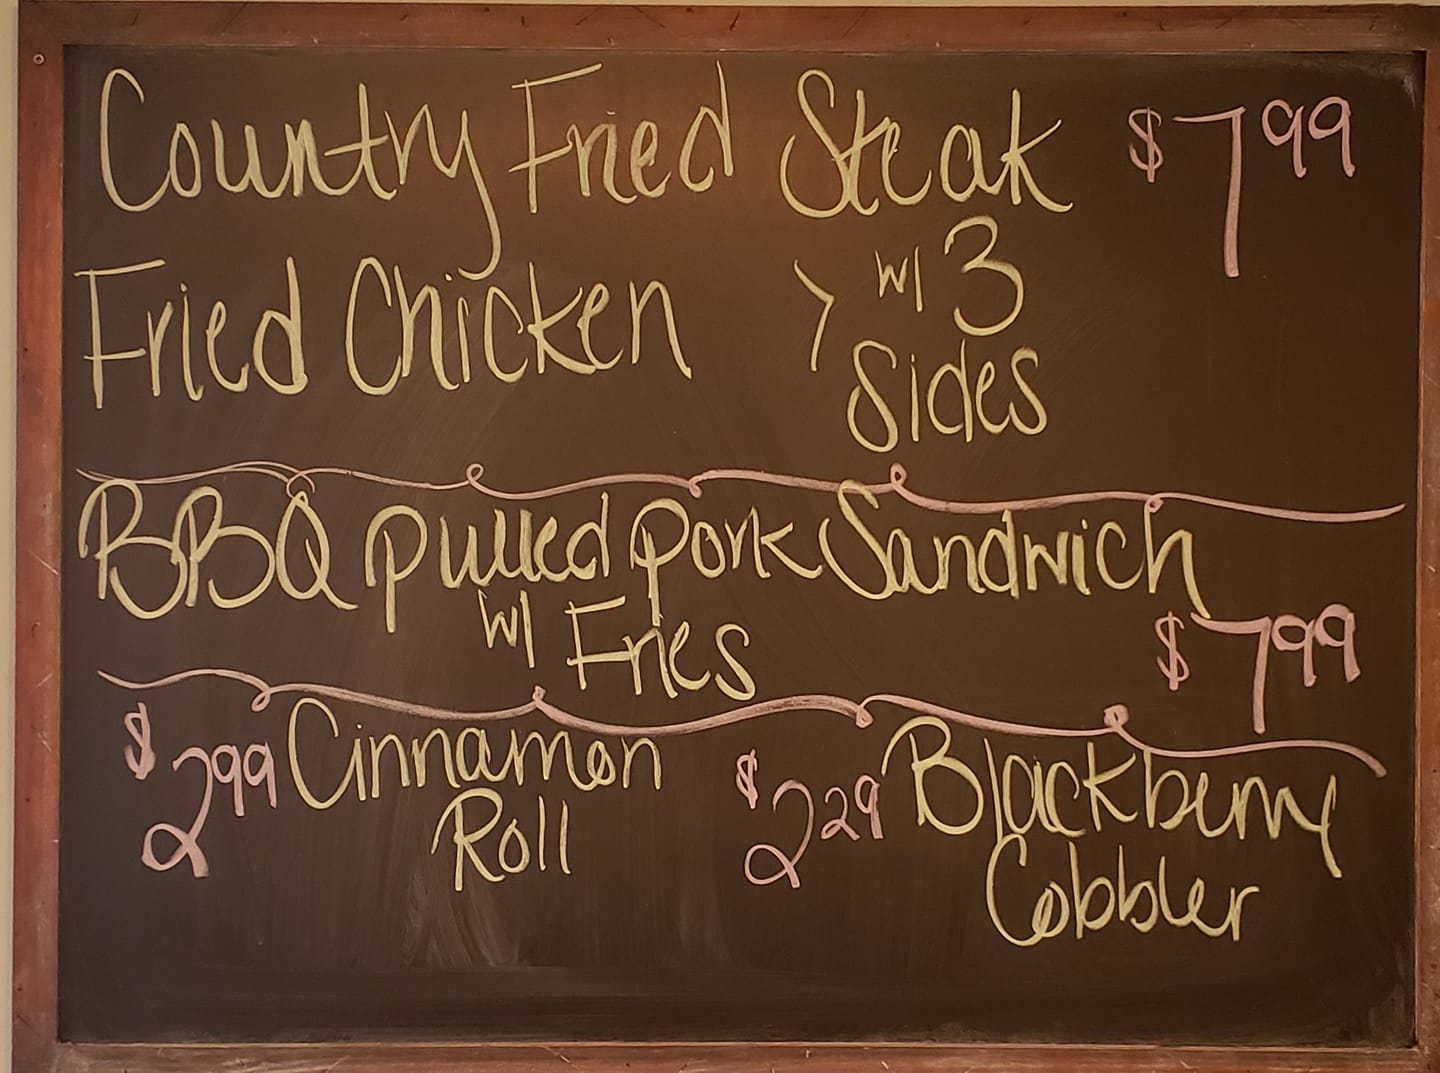 Country Fried Steak $7.99
Fried Chicken > w/ 3
Sides
BBQ pulled pork Sandwich
w/ Fries $7.99
$2.99 Cinnamon Roll
$2.29 Blackberry Cobbler